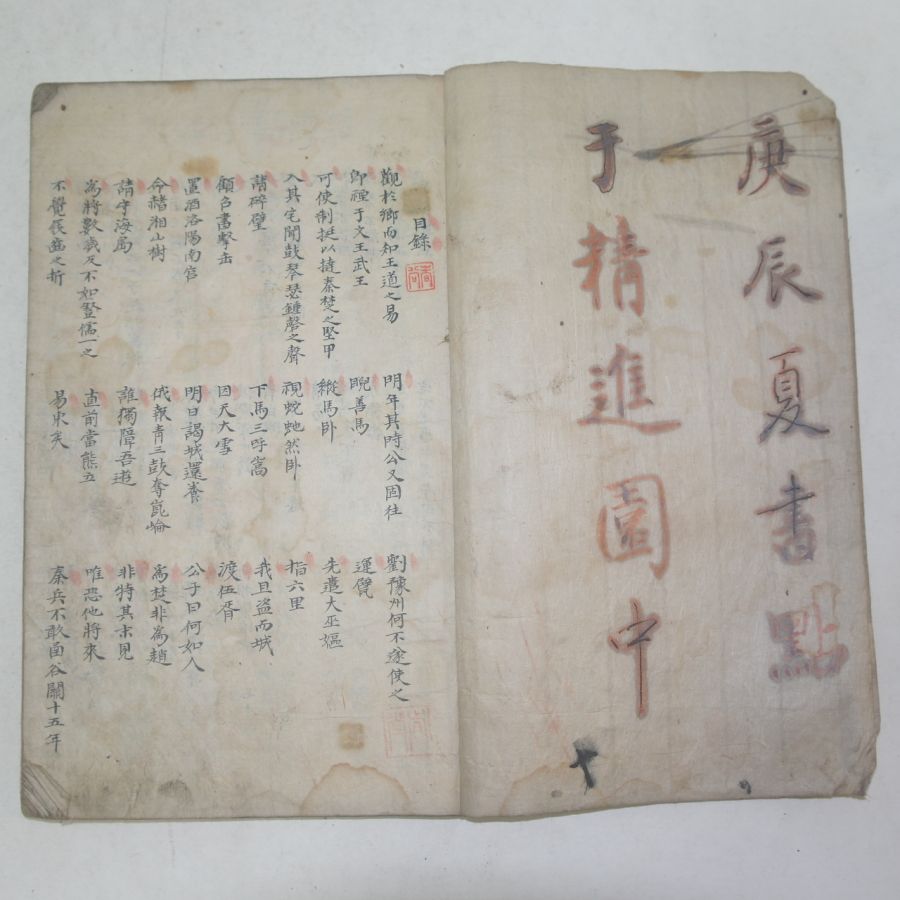 庚辰夏書點
于精進園中
目錄
觀於鄉而知王道之易
明年其時公又固往
劉豫州何不遂使之
即禋于文王武王
睨善馬
運甓
可使制挺以撻秦楚之堅甲
縱馬卧
先遣大巫嫗
入其宅聞鼓琴瑟鍾磬之聲
視蛇虵然卧
指六里
諸碎璧
下馬三呼嵩
我且盜而城
顧召書擊缶
因天大雪
渡伍胥
置酒洛陽南宮
明日謁城還養
公子曰何如人
令赭湘山樹
俄報青三鼓奪崑崘
爲楚非爲趙
請守海島
誰獨障吾道
非特其未見
爲將數歲反不如豎儒一之
直前當熊立
唯恐他將來
不覺屐齒之折
易東矣
秦兵不敢函谷關十五年